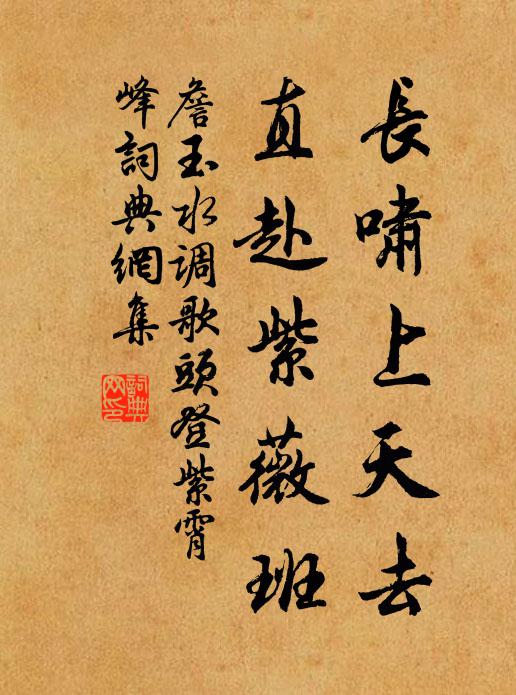 長嘯上天去
直赴紫薇班
詹玉水调歌頭登紫霄
峰詞典網集
詞典
网印